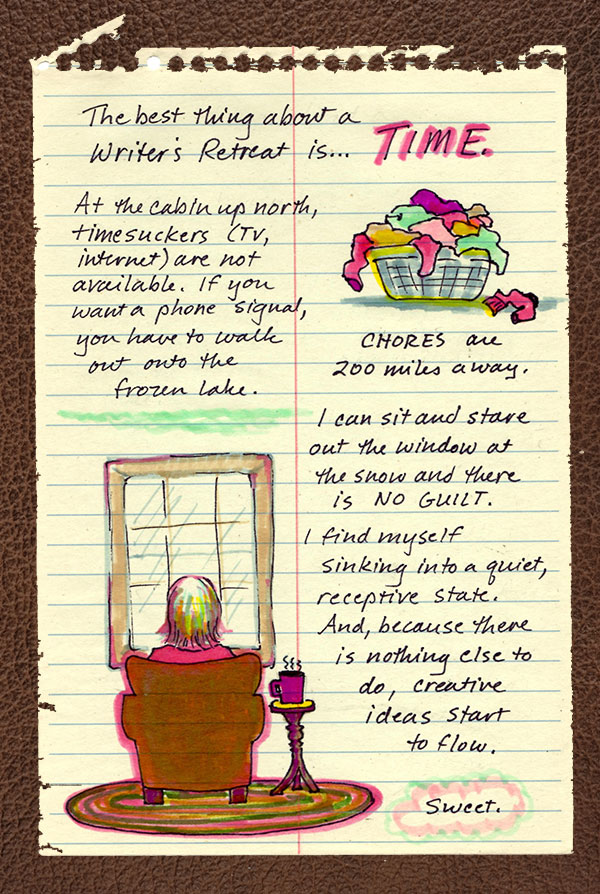 The best thing about a
Writer's Retreat is... TIME.
At the cabin up north,
timesuckers (TV,
internet) are not
available. If you
want a phone signal,
you have to walk
out onto the
frozen lake.
CHORES are
200 miles away.
I can sit and stare
out the window at
the snow and there
is NO GUILT.
I find myself
sinking into a quiet,
receptive state.
And, because there
is nothing else to
do, creative
ideas start
to flow.
Sweet.